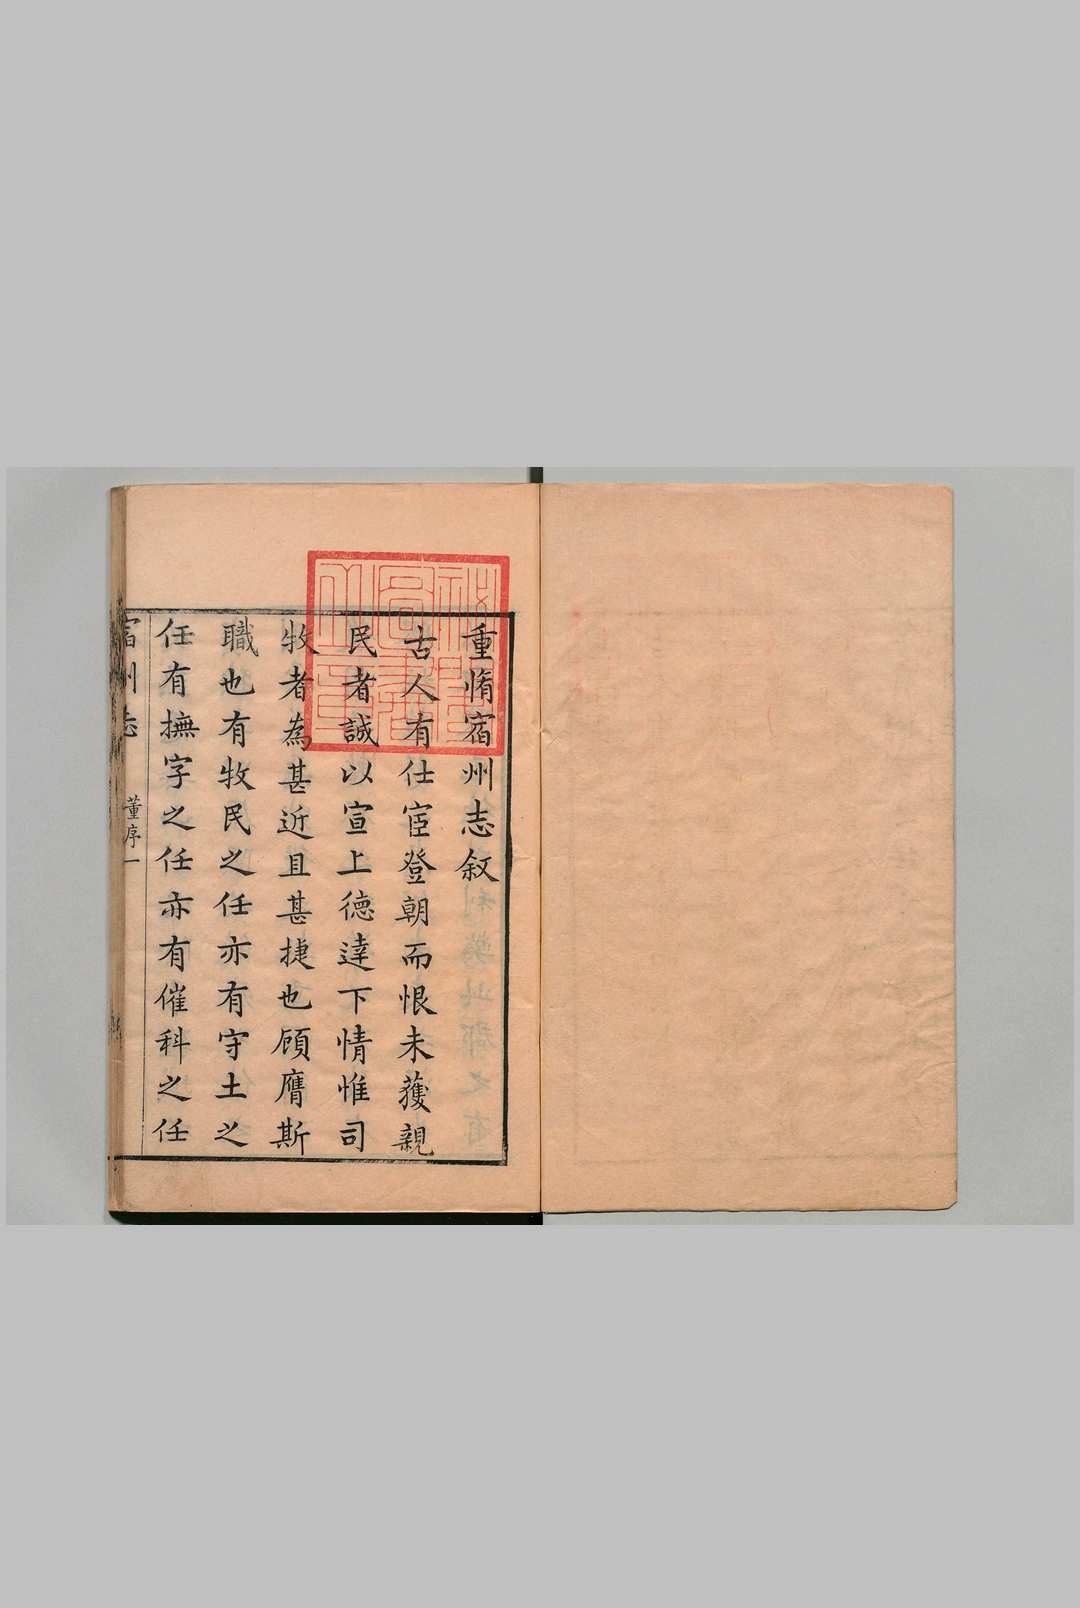 重脩宿州志叙
古人有仕宦登朝而恨未獲親
民者誠以宣上德達下情惟司
牧者為甚近且甚捷也顧膺斯
職也有牧民之任亦有守土之
任有撫字之任亦有催科之任
宿州志
董序一